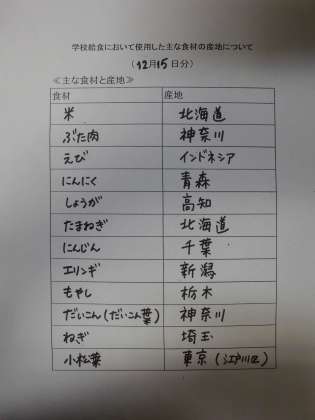 学校給食において使用した主な食材の産地について
(12月15日分)
≪主な食材と産地≫
食材 産地
米 北海道
ぶた肉 神奈川
えび インドネシア
にんにく 青森
しょうが 高知
たまねぎ 北海道
にんじん 千葉
エリンギ 新潟
もやし 栃木
だいこん(だいこん葉) 神奈川
ねぎ 埼玉
小松葉 東京(江戸川区)